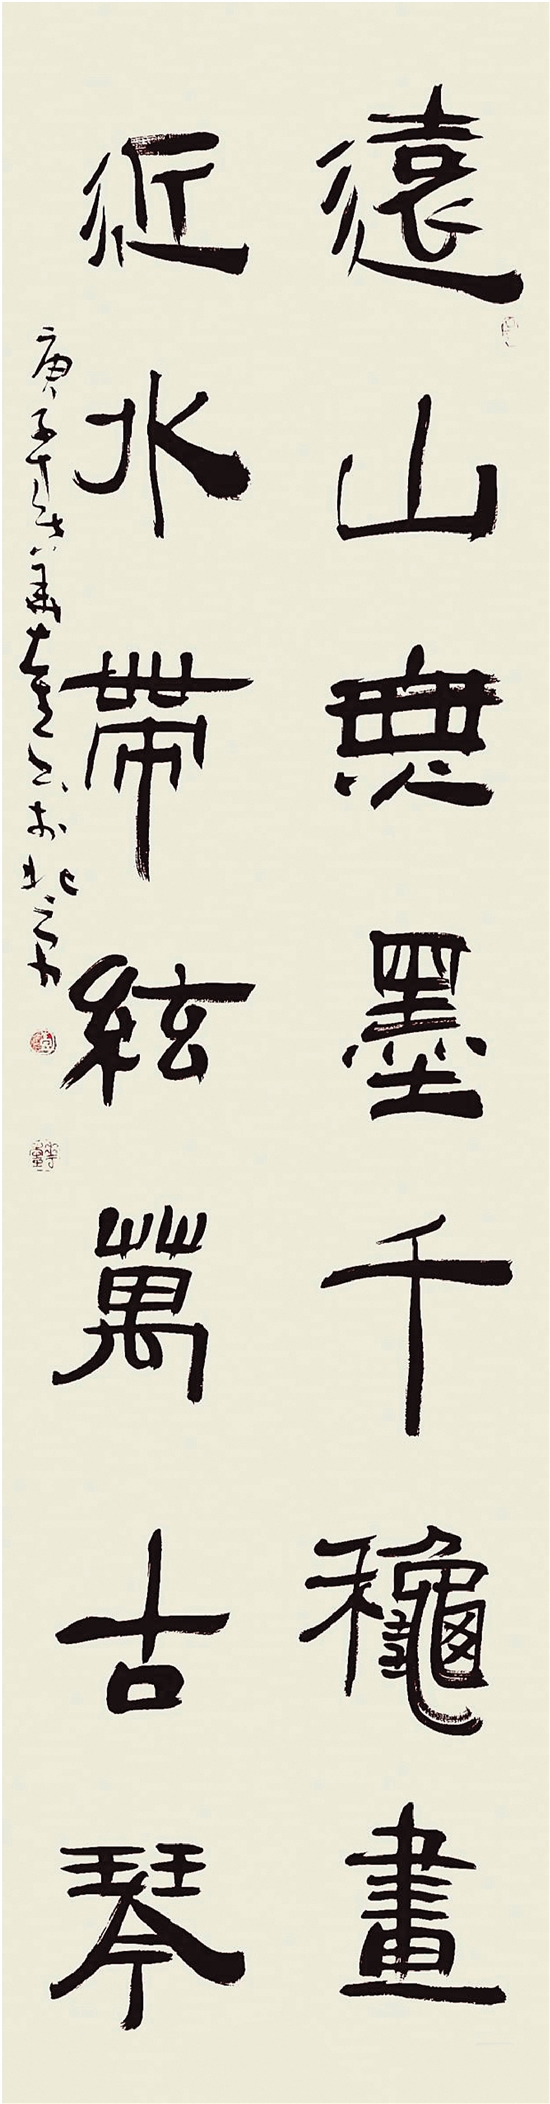 遠山無墨千穐畫
近水帶絃萬古琴
庚子
於北京